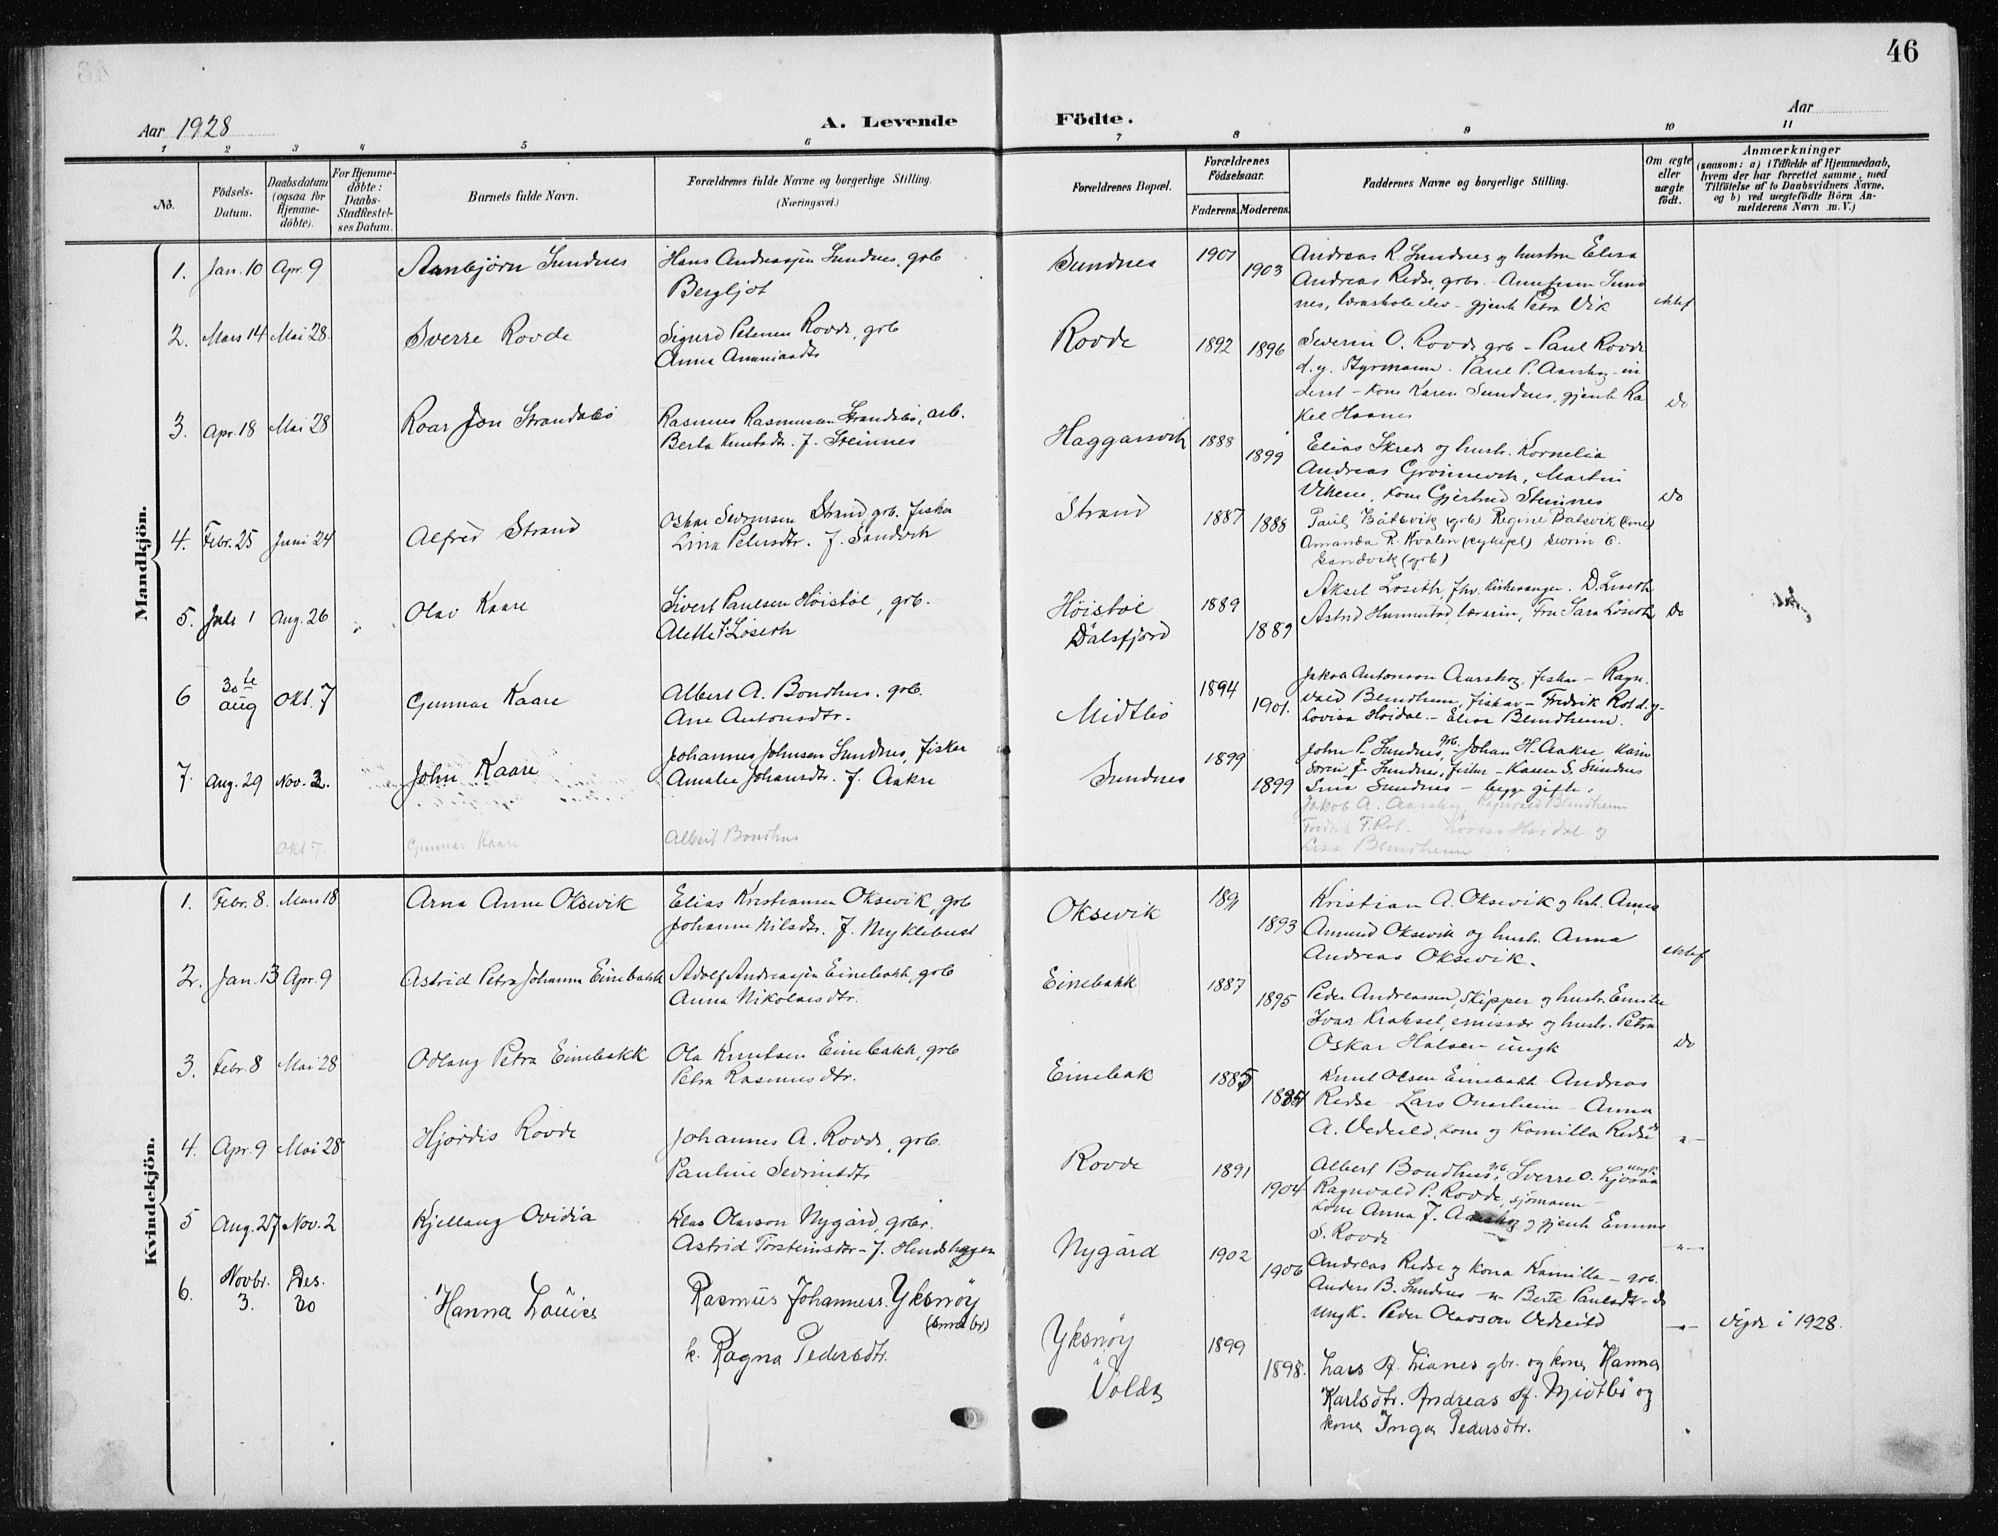 46
Aar 1928
A. Levende
Födte.
Aar
1 2 3 4 5 6 7 8 9 10 11
No.
Födsels-
Datum.
Daabsdatum
(ogsaa for
Hjemme-
döbte).
For Hjemme-
döbte:
Daabs-
Stadfæstel-
ses Datum.
Barnets fulde Navn.
Forældrenes fulde Navne og borgerlige Stilling.
(Næringsvei.)
Forældrenes Bopæl.
Forældrenes
Födselsaar.
Faderens. Moderens.
Faddernes Navne og borgerlige Stilling.
Om ægte
eller
uægte
födt.
Anmærkninger
(saasom: a) i Tilfælde af Hjemmedaab,
hvem der har forrettet samme, med
Tilföielse af to Daabsvidners Navne,
og b) ved uægtefödte Börn An-
melderens Navn m. V.)
Mandkjön.
1. Jan. 10 Apr. 9
Arnbjørn Sundnes
Hans Andreassen Sundnes, grb
Bergljot
Sundnes
1901
1903
Andreas R. Sundnes og hustru Elisa
Andreas Redse, grbr. - Sund
nes, - gjente Petra Vik
ektef
2. Mars 14 Mai 28.
Sverre Rovde
Sigurd Petersen Rovde, grb
Anna Ananiasdtr
Rovde
1892 1896
Severin O. Rovde grb - Paul Rovde
d.y. Styrmann. Paul P. Aarskog -
- Kone Karen Sundnes, gjente Ra
kel Haanes
Do
3. Apr. 18 Mai 28
Roar Jon Strandabø
Rasmus Rasmussen Strandabø, arb.
Berta Knutsdtr. f. Steinnes
Haggarvik
1888
1899
Elias Skrede og hustr. Kornelia
Andreas Grøinevik, Martin
Vikene, Kone Gjertrud Steinnes
Do
4. Febr. 25 Juni 24
Alfred Strand
Oskar Severinsen Strand grb. fisker
Lina Petersdtr. f. Sandvik
Strand
1887 1888
Paul Båtsvik (grb) Regine Båtsvik (kone)
Amanda R. Kvalen Severin C.
Sandvik (grb)
5. Juli 1 Aug. 26
Olav Kaare
Sivert Paulsen Høistøl, grb.
Alette f. Løseth
Høistøl
Dalsfjord
1889
1889
Aksel Løseth, fhv. Kirkesanger. D. Løseth
Astrid Hummstad, lærarin, Fru Sara Løseth
Do
6 30te
aug Okt. 7
Gunnar Kaare
Albert A. Bondhus, grb.
Ane Antonsdtr.
Midtbø
1894
1901.
Jakob Antonson Aarskog, fisker - Ragn-
vald Blindheim, fiskar - Fredrik Rot d.y-
Lovisa Hoidal. - Elisa Blindheim.
7. Aug. 29 Nov. 2.
John Kaare
Johannes Johnsen Sundnes, fisker
Amalie Johansdtr. f. Aakre
Sundnes
1899
1899
John P. Sundnes, grb. Johan H. Aakre
Søren J. Sundnes, fisker - Karen S. Sundnes
Lina Sundnes - begge gifte.
Okt 7. Gunnar Kaare Albert Bondhus
Jakob A. Aarskog, Ragnvald Blindheim
Fredrik F. Rot - Lovise Hoidal og
Lisa Blindheim
Kvindekjön.
1. Febr. 8. Mars 18
Arna Anne Oksevik
Elias Kristiansen Oksevik, grb
Johanne Nilsdtr. f. Myklebust
Oksevik
1891
1893
Kristian A. Oksevik og hustr. Anna
Amund Oksevik og hustr. Anna
Andreas Oksevik.
ektef
2. Jan. 13 Apr. 9
Astrid Petra Johanna Einebakk
Adolf Andreassen Einebakk, grb
Anna Nikolaisdtr.
Einebakk
1887
1895
Peder Andreassen, skipper og hustr. Emilie
Ivar Kraksel, emissær og hustr. Petra
Oskar Halsen ungk
Do
3. Febr. 8 Mai 28
Odlaug Petra Einebakk
Ola Knutsen Einebakk, grb
Petra Rasmusdtr.
Einebak
1885
Knut Olsen Einebakk Andreas
Redse - Lars - Anna
A. Vedeld, kone og Kamilla Redse
-"-
4. Apr. 9 Mai 28
Hjørdis Rovde
Johannes A. Rovde, grb.
Pauline Severinsdtr
Rovde
1891
1904
Albert Bondhus, grb, Sverre O. ungk.
Ragnvald P. Rovde, sjømann -
Kone Anna J. Aarskog, gjente Emma
S. Rovde
-"-
5 Aug. 27 Nov. 2
Kjellaug Ovidia
Klas Olavson Nygård, grbr.
Astrid Torsteinsdtr - f.
Nygård
1902
1906
Andreas Redse og kona Kamilla - grb.
Anders B. Sundnes -"- Berte Paulsdtr - do
ungk. Peder Olavson Vedeld
-"-
vigde i 1928.
6. Novbr.
3. Des.
30
Hanna Lovise
Rasmus Johanness. Yksnøy
k. Ragna Pedersdtr.
Yksnøy
i Volda
1899
1898.
Lars A. gbr. og kona Hanna
Karlsdtr. Andreas A. Midtbø og
kona Inga Pedersdtr.